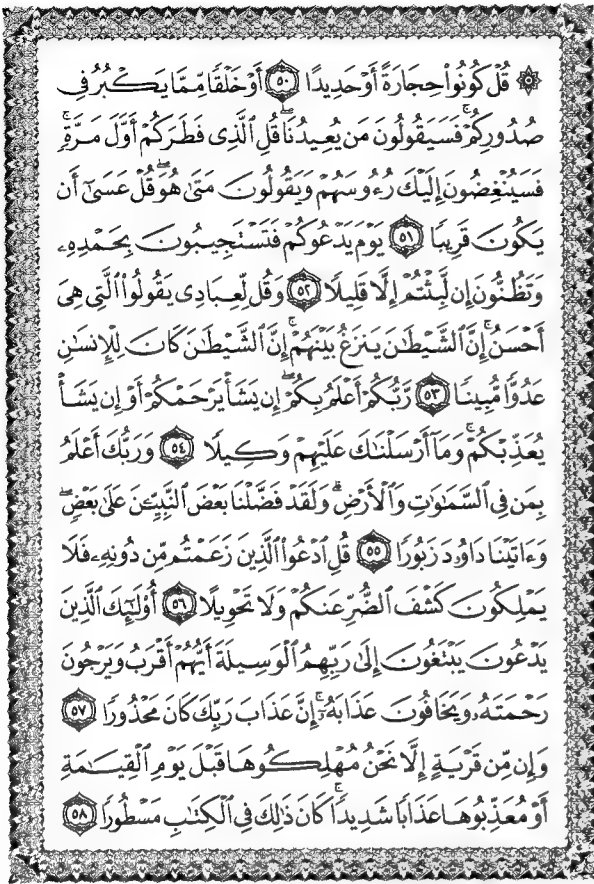 ۞ قُلۡ كُونُواْ حِجَارَةً أَوۡ حَدِيدًا ٥٠ أَوۡ خَلۡقٗا مِّمَّا يَكۡبُرُ فِي
صُدُورِكُمۡۚ فَسَيَقُولُونَ مَن يُعِيدُنَاۖ قُلِ ٱلَّذِي فَطَرَكُمۡ أَوَّلَ مَرَّةٖۚ
فَسَيُنۡغِضُونَ إِلَيۡكَ رُءُوسَهُمۡ وَيَقُولُونَ مَتَىٰ هُوَۖ قُلۡ عَسَىٰٓ أَن
يَكُونَ قَرِيبٗا ٥١ يَوۡمَ يَدۡعُوكُمۡ فَتَسۡتَجِيبُونَ بِحَمۡدِهِۦ
وَتَظُنُّونَ إِن لَّبِثۡتُمۡ إِلَّا قَلِيلٗا ٥٢ وَقُل لِّعِبَادِي يَقُولُواْ ٱلَّتِي هِيَ
أَحۡسَنُۚ إِنَّ ٱلشَّيۡطَٰنَ يَنزَغُ بَيۡنَهُمۡۚ إِنَّ ٱلشَّيۡطَٰنَ كَانَ لِلۡإِنسَٰنِ
عَدُوّٗا مُّبِينٗا ٥٣ رَّبُّكُمۡ أَعۡلَمُ بِكُمۡۖ إِن يَشَأۡ يَرۡحَمۡكُمۡ أَوۡ إِن يَشَأۡ
يُعَذِّبۡكُمۡۚ وَمَآ أَرۡسَلۡنَٰكَ عَلَيۡهِمۡ وَكِيلٗا ٥٤ وَرَبُّكَ أَعۡلَمُ
بِمَن فِي ٱلسَّمَٰوَٰتِ وَٱلۡأَرۡضِۗ وَلَقَدۡ فَضَّلۡنَا بَعۡضَ ٱلنَّبِيِّـۧنَ عَلَىٰ بَعۡضٖۖ
وَءَاتَيۡنَا دَاوُۥدَ زَبُورٗا ٥٥ قُلِ ٱدۡعُواْ ٱلَّذِينَ زَعَمۡتُم مِّن دُونِهِۦ فَلَا
يَمۡلِكُونَ كَشۡفَ ٱلضُّرِّ عَنكُمۡ وَلَا تَحۡوِيلًا ٥٦ أُوْلَٰٓئِكَ ٱلَّذِينَ
يَدۡعُونَ يَبۡتَغُونَ إِلَىٰ رَبِّهِمُ ٱلۡوَسِيلَةَ أَيُّهُمۡ أَقۡرَبُ وَيَرۡجُونَ
رَحۡمَتَهُۥ وَيَخَافُونَ عَذَابَهُۥٓۚ إِنَّ عَذَابَ رَبِّكَ كَانَ مَحۡذُورٗا ٥٧
وَإِن مِّن قَرۡيَةٍ إِلَّا نَحۡنُ مُهۡلِكُوهَا قَبۡلَ يَوۡمِ ٱلۡقِيَٰمَةِ
أَوۡ مُعَذِّبُوهَا عَذَابٗا شَدِيدٗاۚ كَانَ ذَٰلِكَ فِي ٱلۡكِتَٰبِ مَسۡطُورٗا ٥٨